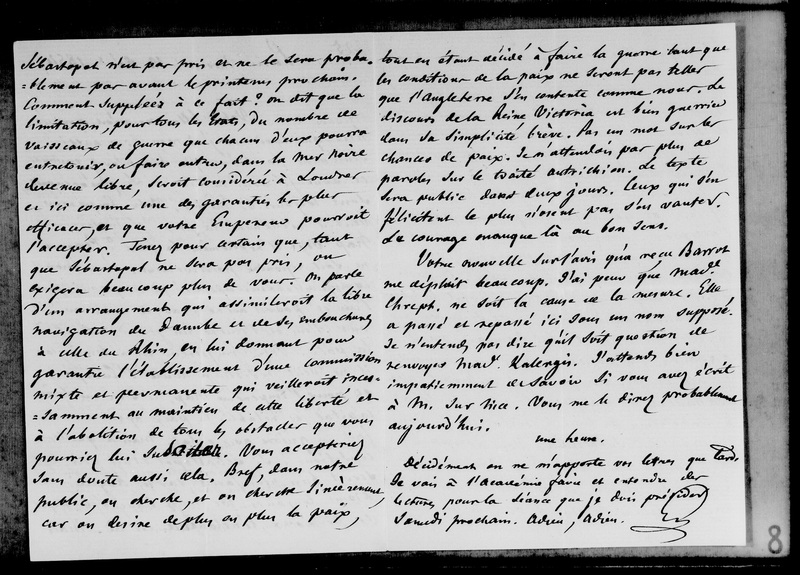 Sébastopol n'est pas pris et ne le sera proba-
=blement pas avant le printems prochain.
Comment suppléez à ce fait? on dit que la
limitation, pour tous les Etats, du nombre de
vaisseaux de guerre que chacun d'eux pourra
entretenir, ou faire entrer, dans la mer noire
devenue libre, seroit considéré à Londres
et ici comme une des garanties les plus
efficaces, et que votre Empereur pourroit
l'accepter. Tenez pour certain que, tant
que Sébastopol ne sera pas pris, on
exigera beaucoup plus de vous. On parle
d'un arrangement qui assimileroit la libre
navigation du Danube et de ses embouchures
à celle du Rhin, en lui donnant pour
garantie l'établissement d'une commission
mixte et permanente qui veilleroit inces-
=samment au maintien de cette liberté et
à l'abolition de tous les obstacles que vous
pourriez lui susciter. Vous accepteriez
sans doute aussi cela. Bref, dans notre
public, on cherche, et on cherche sincèrement,
car on desire de plus en plus la paix,
tout en étant décidé à faire la guerre tant que
les conditions de la paix ne seront pas telles
que l'Angleterre s'en contente comme nous. Le
discours de la Reine Victoria est bien guerrier
dans sa simplicité brève. Pas un mot sur les
chances de paix. Je m'attendois pas plus de
paroles sur le traité autrichien. Le texte
sera public dans deux jours. Ceux qui s'en
félicitent le plus n'osent pas s'en vanter.
Le courage manque là au bon sens.
Votre nouvelle sur l'avis qu'a reçu Barrot
me déplait beaucoup. J'ai peur que Mad.e
Chreph. ne soit la cause de la mesure. Elle
a passé et repassé ici sous un nom supposé.
Je n'entends pas dire qu'il soit question de
renvoyer Mad.e Kalergis. J'attends bien
impatiemment de savoir si vous avez écrit
à M. sur Nice. Vous me le direz probablement
aujourd'hui.
une heure.
Décidément on ne m'apporte vos lettres que tard.
Je vais à l'Académie faire et entendre des
lectures pour la séance que je dois présider
Samedi prochain. Adieu, Adieu.
8